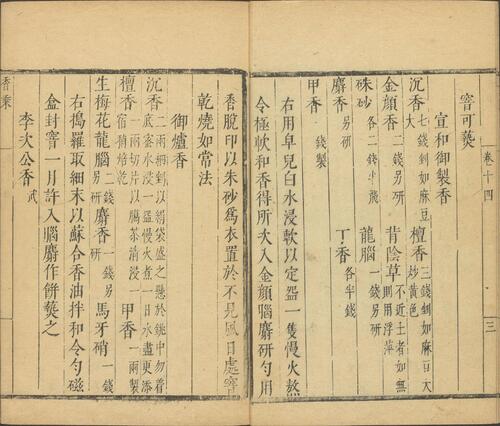 卷十四
三
窨可爇
宣和御製香
沉香七錢剉如麻豆大 檀香三錢剉如麻豆大炒黃色
金顏香二錢另研 背陰草不近土者如無則用浮萍
硃砂各二錢半飛 龍腦一錢另研
麝香另研 丁香各半錢
甲香一錢製
右用皁兒白水浸軟以定盌一隻慢火熬
令極軟和香得所次入金顏腦麝研勻用
香脫印以朱砂爲衣置於不見風日處窨
乾燒如常法
御爐香
沉香二兩剉細以絹袋盛之懸於銚中勿着底蜜水浸一盌慢火煮一日水盡更添
檀香一兩切片以臘茶清浸一宿稍焙乾 甲香一兩製
生梅花龍腦二錢另研 麝香一錢另研 馬牙硝一錢
右搗羅取細末以蘇合香油拌和令勻磁
盒封窨一月許入腦麝作餅爇之
李次公香武
香乘